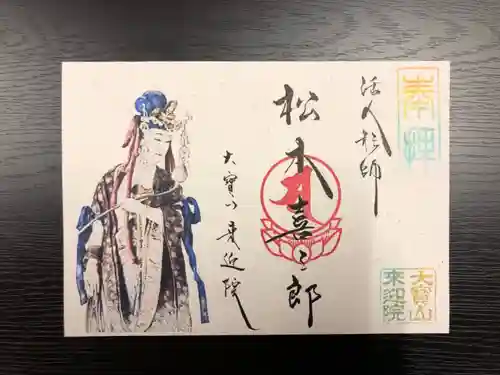 奉拝
活人形師
松本喜三郎
大寳山 来迎院
大寳山
来迎院